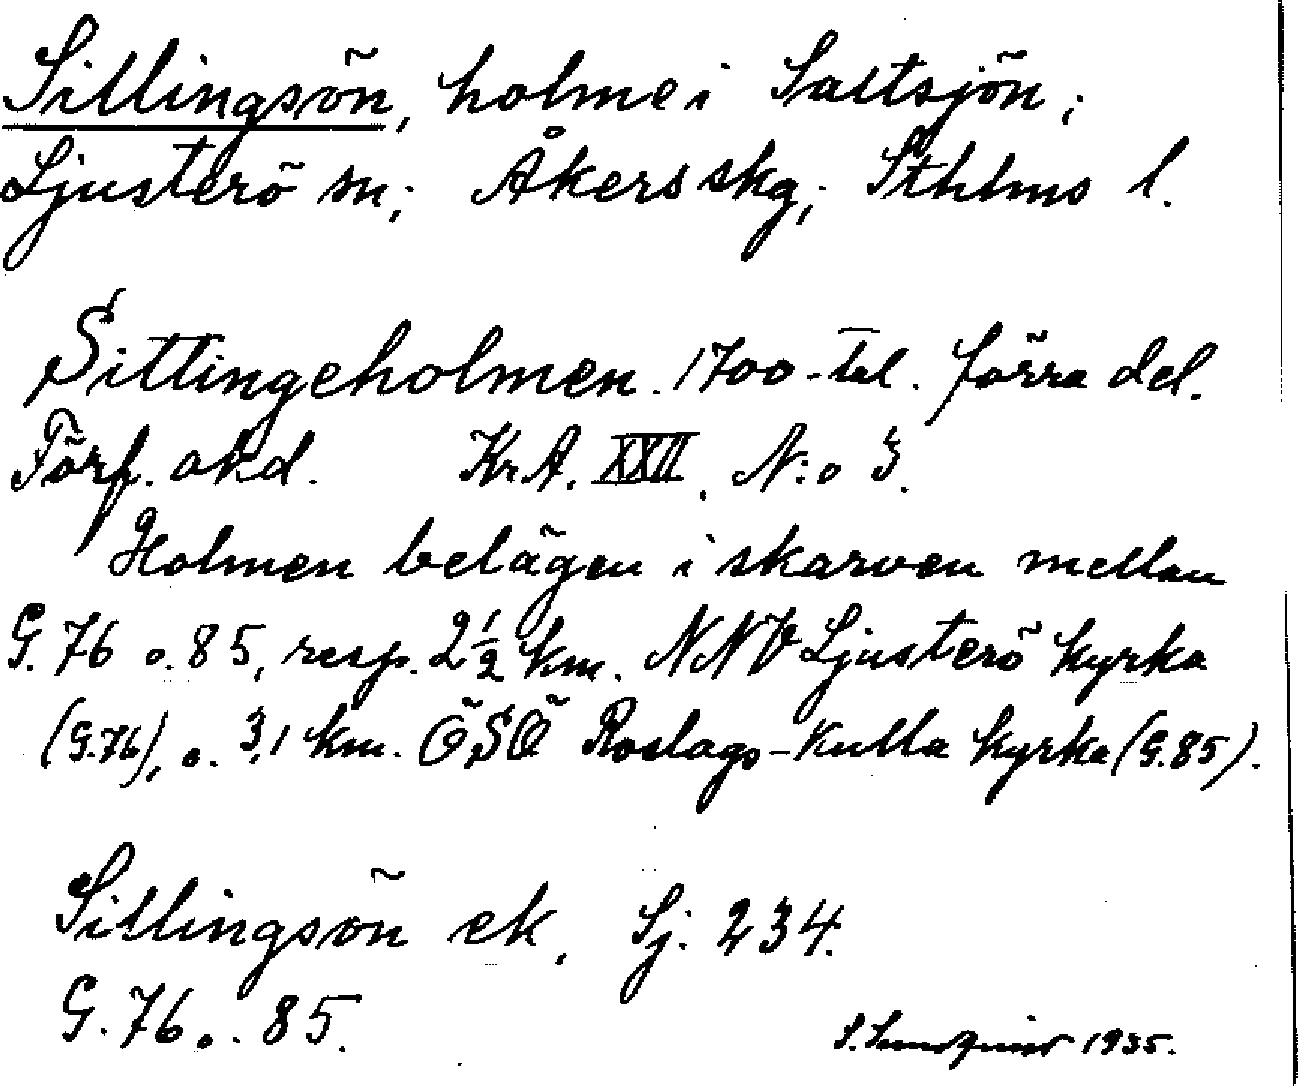 Sillingsön, holme i Saltsjön;
Ljusterö sn; Åkers skg; Sthlms l.
Sittingeholmen. 1700-tal. förra del.
Förf. okd. Kr.A. XXII. N:o 3.
Holmen belägen i skarven mellan
G. 76 o. 85, resp. 2½ km. NNV Ljusterö kyrka
(G.76), o. 3,1 km. ÖSÖ Roslags-Kulla kyrka (G.85).
Sillingsön ek. Sj. 234.
G. 76 o. 85.
S. Sundquist 1935.